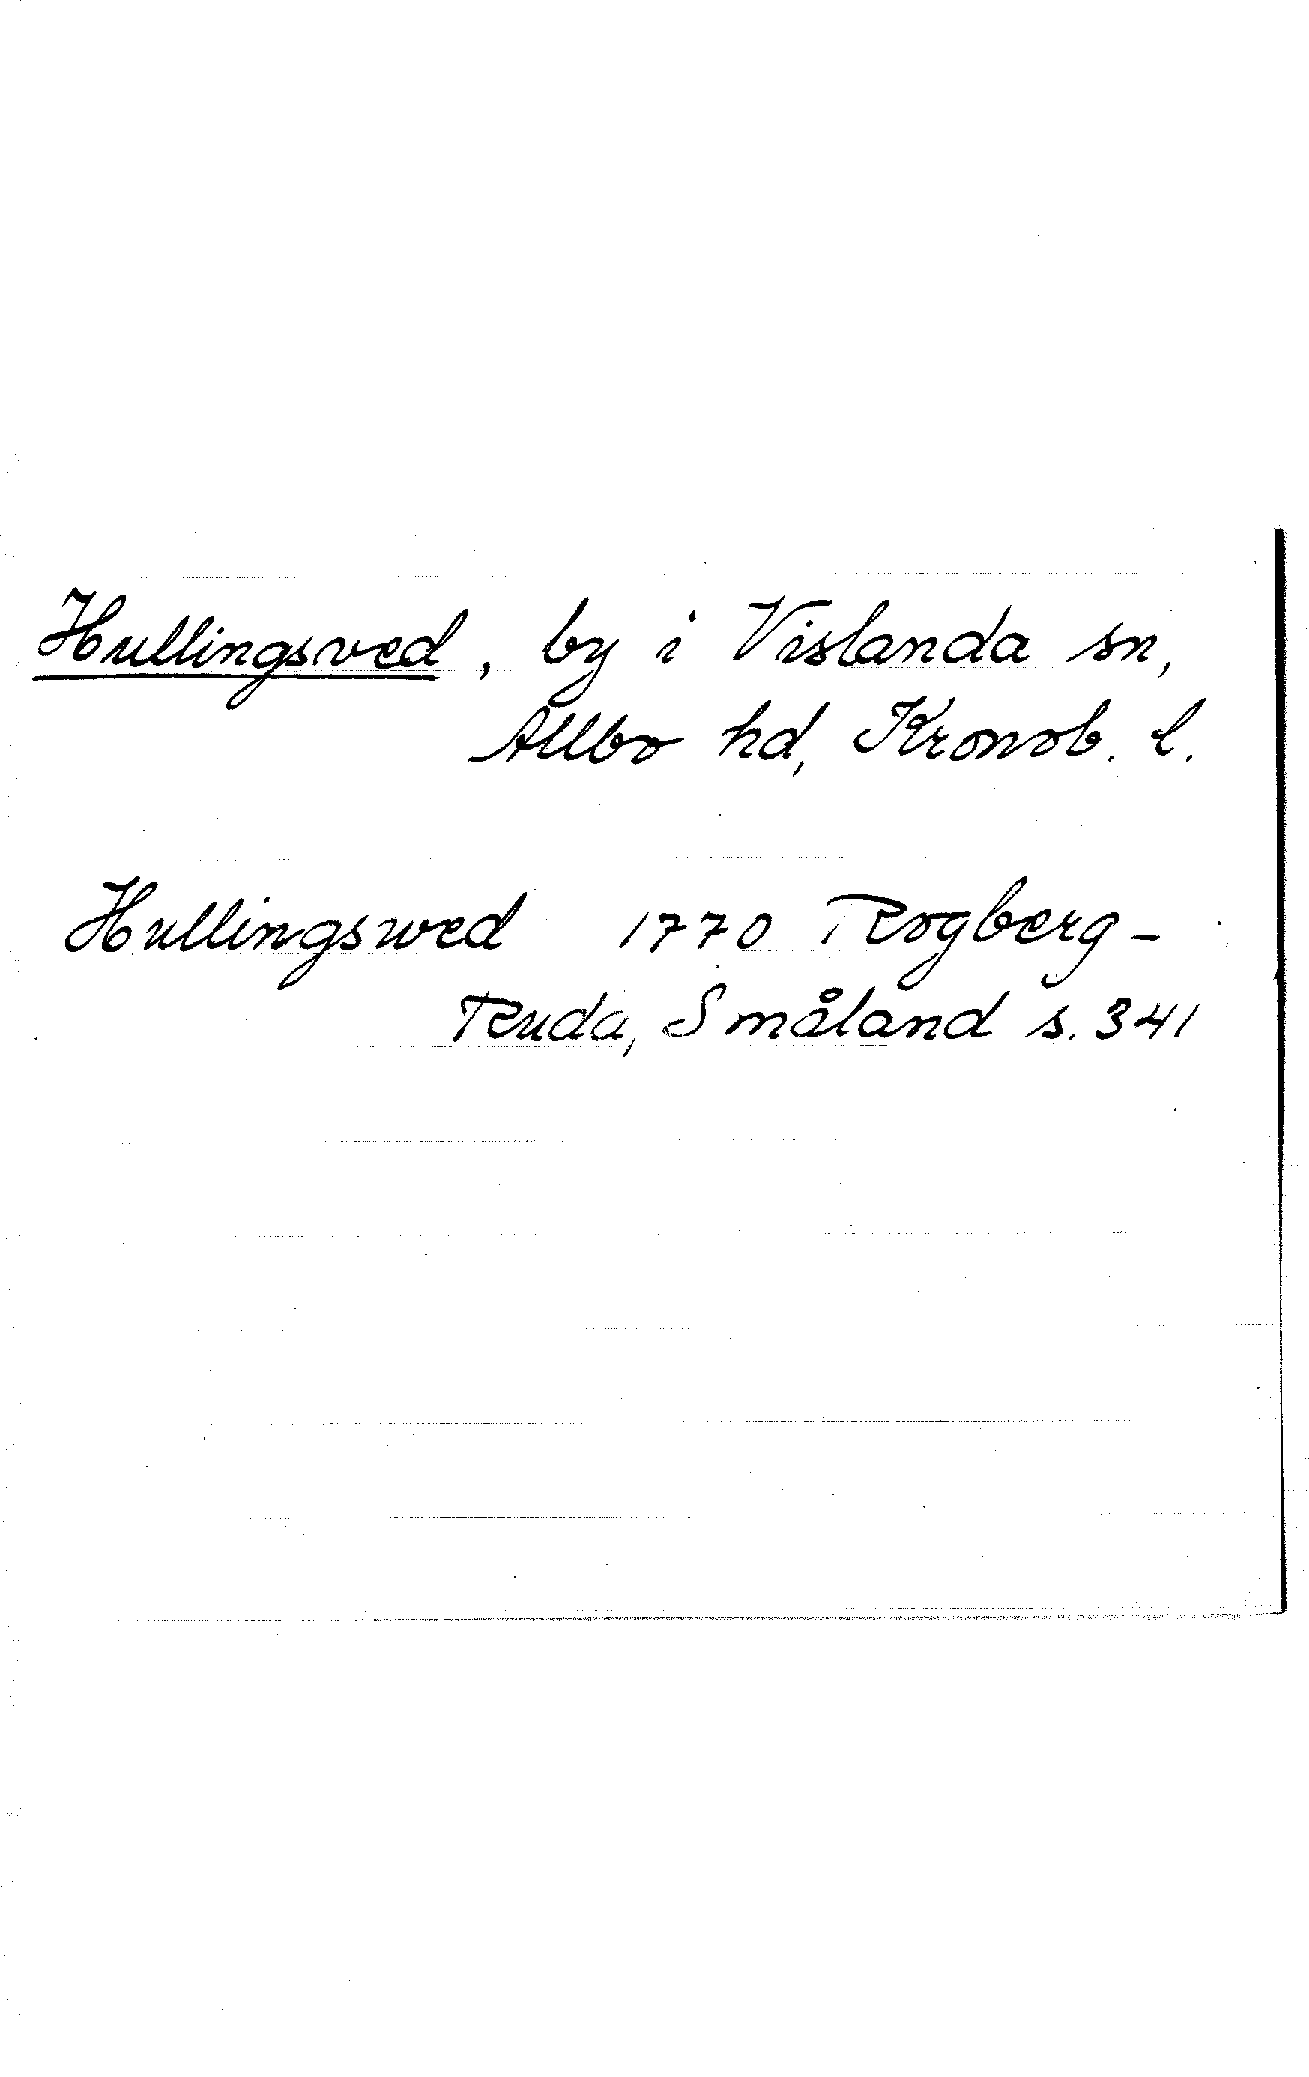 Hullingsved, by i Vislanda sn,
Allbo hd, Kronob. l.
Hullingswed 1770 Rogberg-
Ruda, Småland s. 341